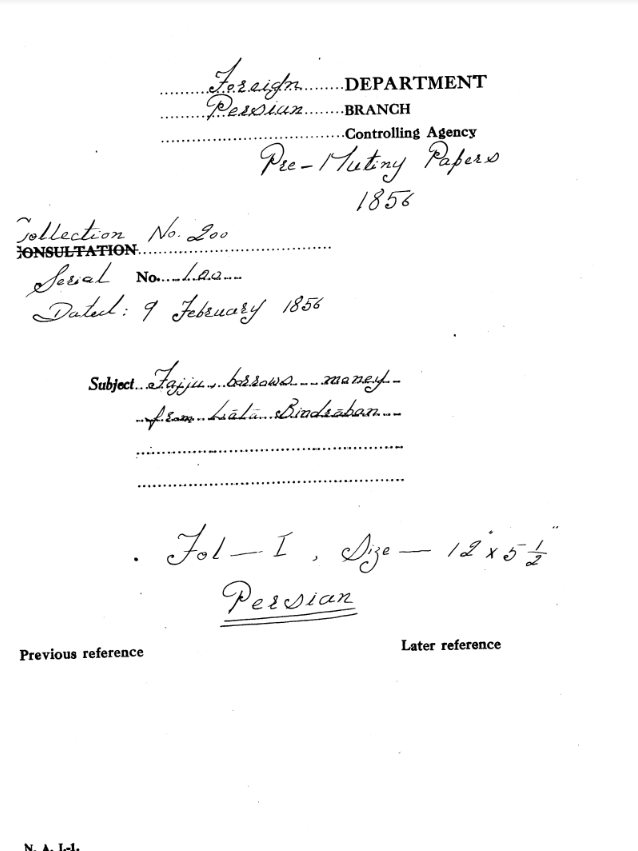 Foreign DEPARTMENT
Persian BRANCH
Controlling Agency
Pre-Mutiny Papers
1856
Collection No. 200
CONSULTATION
Serial No. 100
Dated: 9 February 1856
Subject Fajju borrows money
from Lālā Bindraban
Fol — I, Size — 12" x 5 1/2"
Persian
Previous reference
Later reference
N. A. I.-1.